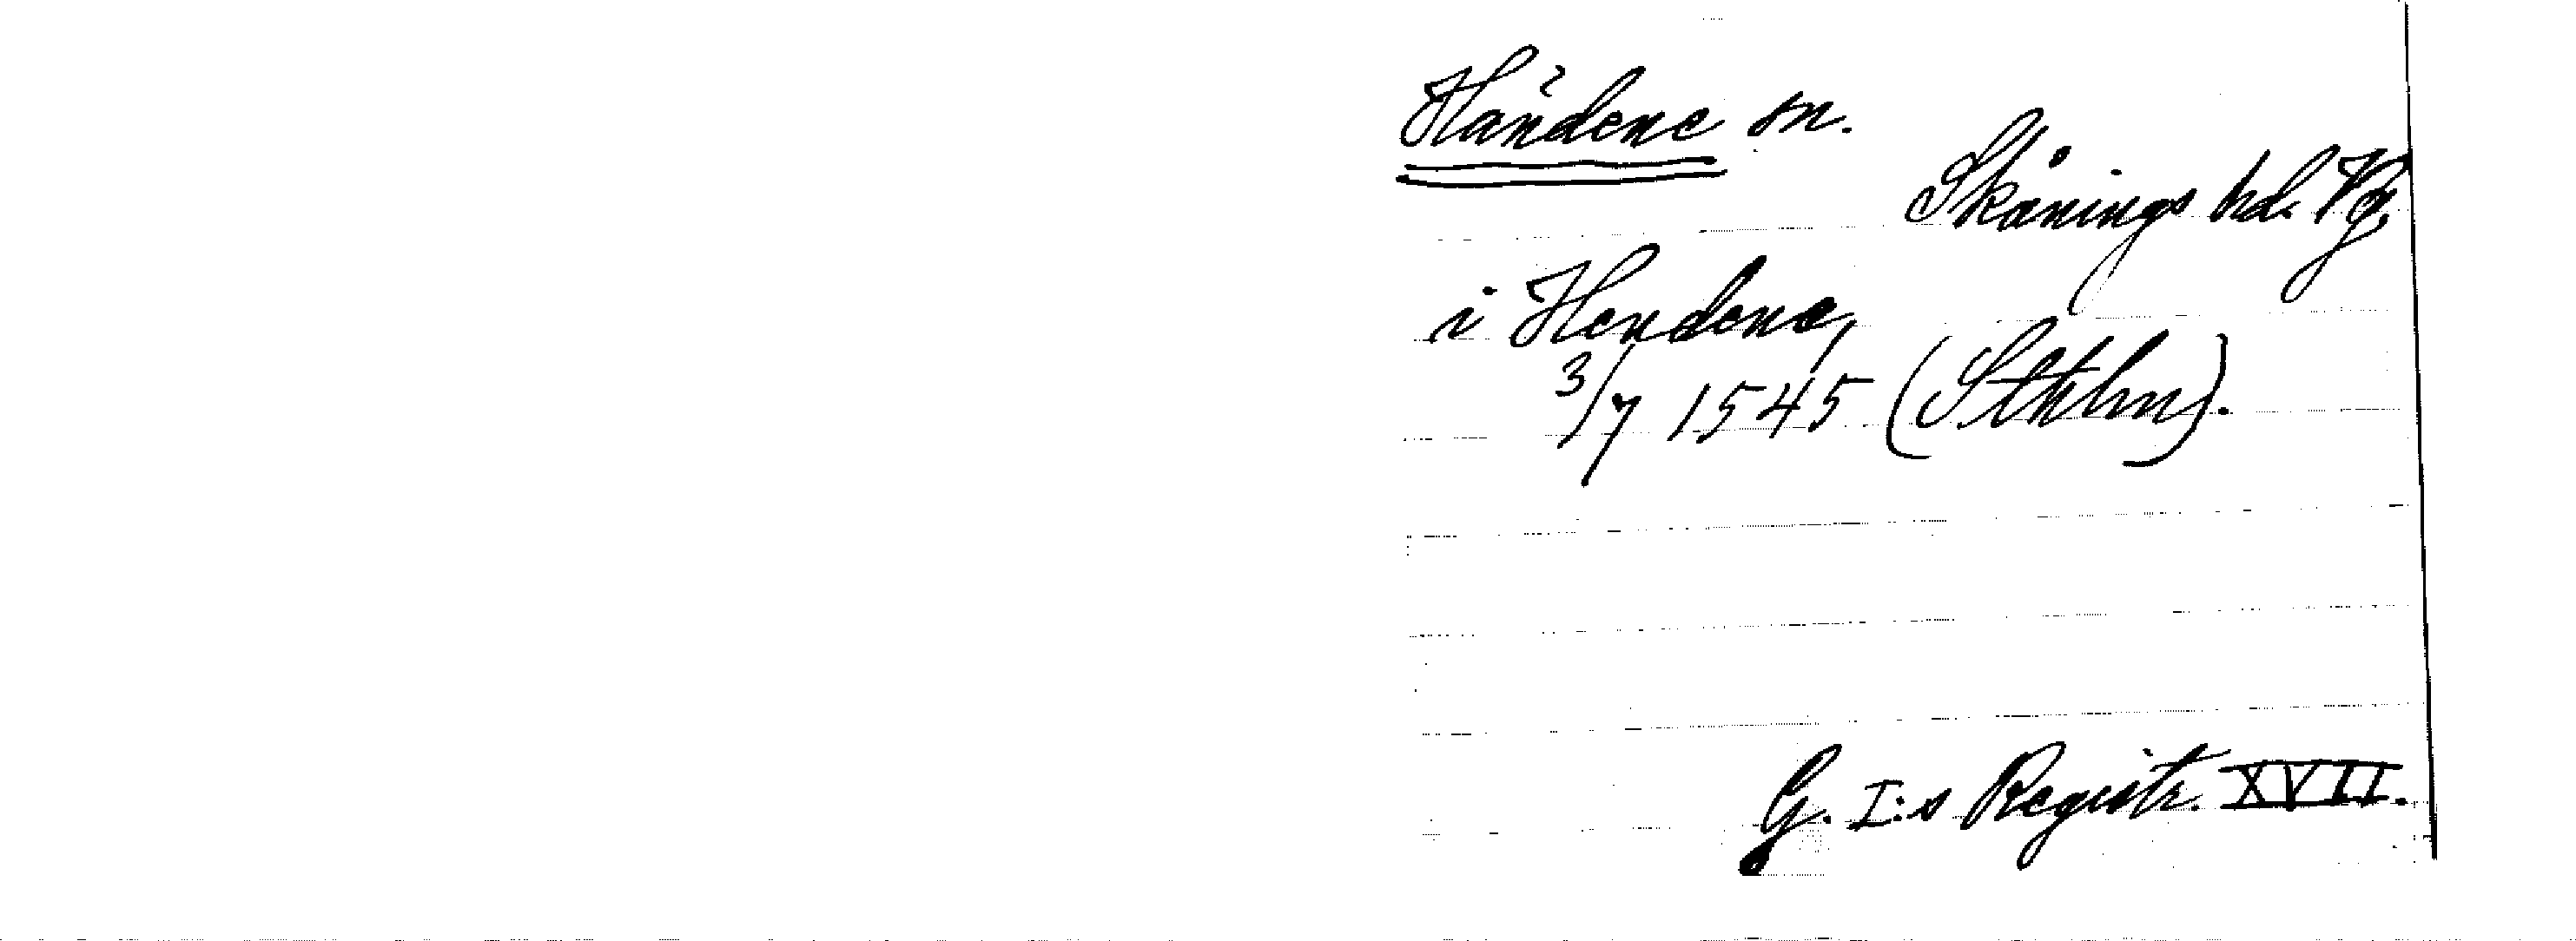 Händene sn.
Skånings hd. Vg.
i Hendene,
3/7 1545 (Sthlm).
G. I:s Registr. XVII.